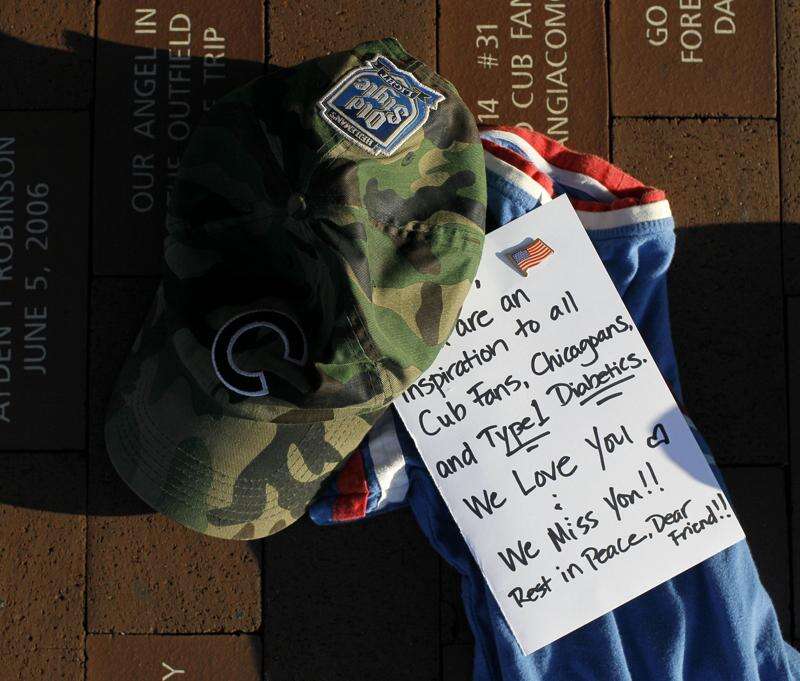 OUR ANGEL IN
THE OUTFIELD
TRIP
14 #31
CUB FAN
NGIACOM
GO
FORE
DA
ROBINSON
JUNE 5, 2006
Old
Style
C
are an
inspiration to all
Cub Fans, Chicagoans,
and Type 1 Diabetics.
We Love You
&
We Miss You!!
Rest in Peace, Dear
Friend!!
Y